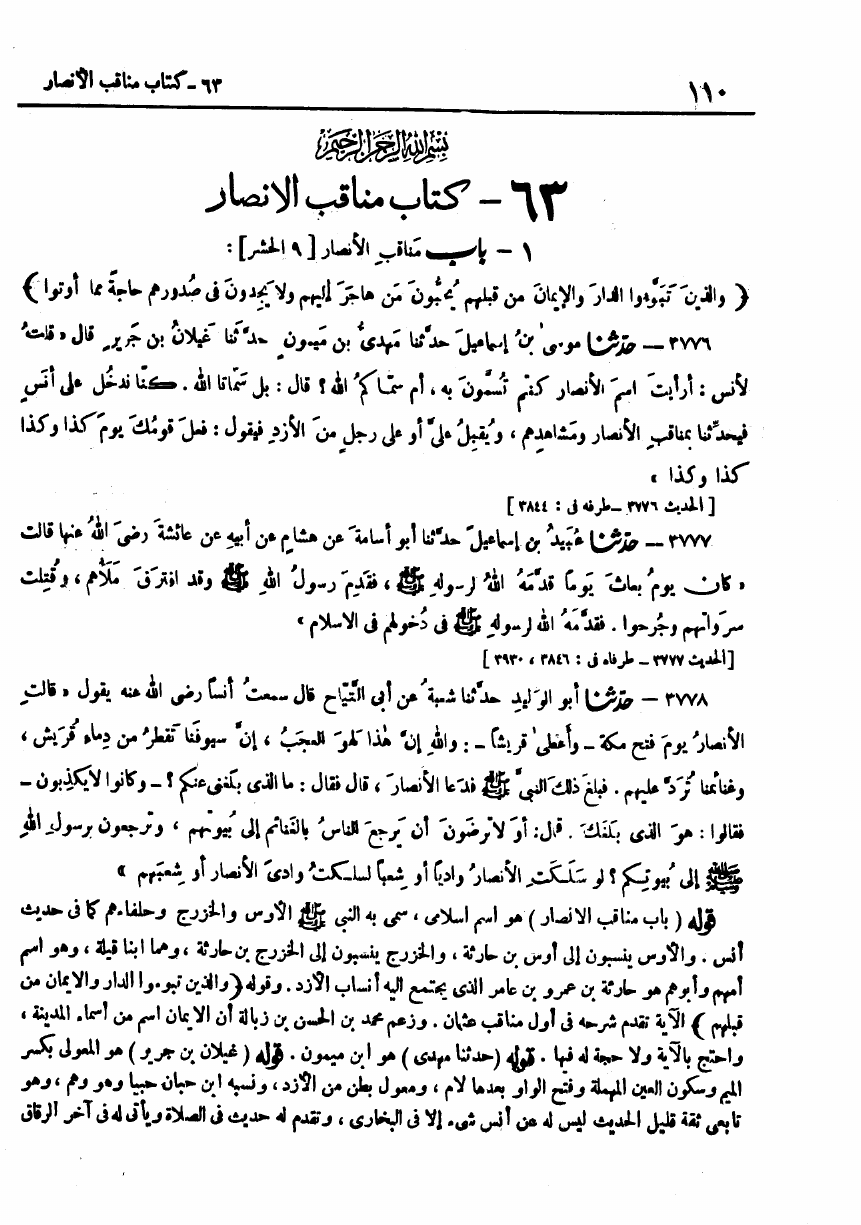 ١١٠
٦٣ - كتاب مناقب الأنصار
بسم الله الرحمن الرحيم
٦٣ - كتاب مناقب الانصار
١ - باب مَناقبِ الأنصار [ ٩ الحشر ] :
﴿ والذينَ تَبَوَّءوا الدارَ والإيمانَ من قبلِهم يُحبُّونَ مَن هاجَرَ إليهم ولا يَجِدونَ فى صُدورهم حاجةً مما أوتوا ﴾
٣٧٧٦ - حدثنا موسىٰ بنُ إسماعيلَ حدَّثنا مَهدىُّ بن مَيمونٍ حدَّثنا غَيلانُ بن جَريرٍ قال « قلتُ
لأنس : أرأيتَ اسمَ الأنصار كنتم تُسمَّونَ به ، أم سمّاكمُ الله ؟ قال : بل سَمّانا الله . كنّا ندخُل على أنَسٍ
فيحدِّثنا بمناقبِ الأنصار ومَشاهدِهم ، ويُقبِلُ علىَّ أو على رجلٍ منَ الأزدِ فيقول : فعلَ قومُكَ يومَ كذا وكذا
كذا وكذا »
[ الحديث ٣٧٧٦ - طرفه فى : ٣٨٤٤ ]
٣٧٧٧ - حدثنا عُبَيدُ بن إسماعيلَ حدَّثنا أبو أسامةَ عن هشامٍ عن أبيهِ عن عائشةَ رضىَ اللهُ عنها قالت
« كان يومُ بعاثَ يَوماً قدَّمَهُ اللهُ لرسولهِ ﷺ ، فقدِمَ رسولُ اللهِ ﷺ وقد افترَقَ مَلَأُهم ، وقُتِلت
سرَوَاتهم وجُرحوا . فقدَّمَهُ الله لرسولهِ ﷺ فى دُخولهم فى الاسلام »
[الحديث ٣٧٧٧ - طرفاه فى : ٣٨٤٦ ، ٣٩٣٠ ]
٣٧٧٨ - حدثنا أبو الوَليدِ حدَّثنا شعبةُ عن أبى التَّيّاح قال سمعتُ أنساً رضى الله عنه يقول « قالتِ
الأنصارُ يومَ فتح مكة - وأعطىٰ قريشاً - : واللهِ إنَّ هٰذا لهوَ العجَبُ ، إنَّ سيوفَنا تَقطرُ من دِماءِ قُرَيش ،
وغنائمنا تُرَدُّ عليهم . فبلغَ ذلكَ النبىَّ ﷺ فدَعا الأنصارَ ، قال فقال : ما الذى بلَغنى عنكم ؟ - وكانوا لايكذِبون -
فقالوا : هوَ الذى بَلغَكَ . قال: أوَ لا ترضَونَ أن يَرجعَ الناسُ بالغَنائم إلى بُيوتهم ، وتَرجعون برسولِ اللهِ
ﷺ إلى بُيوتِكم ؟ لو سَلَكَتِ الأنصارُ وادياً أو شِعباً لسلكتُ وادىَ الأنصار أو شِعبَهم »
قوله ( باب مناقب الانصار ) هو اسم اسلامى ، سمى به النبى ﷺ الأوس والخزرج وحلفاءهم كما فى حديث
أنس . والأوس ينسبون إلى أوس بن حارثة ، والخزرج ينسبون إلى الخزرج بن حارثة ، وهما ابنا قيلة ، وهو اسم
أمهم وأبوهم هو حارثة بن عمرو بن عامر الذى يجتمع اليه أنساب الأزد . وقوله ﴿ والذين تبوءوا الدار والايمان من
قبلهم ﴾ الآية تقدم شرحه فى أول مناقب عثمان . وزعم محمد بن الحسن بن زبالة أن الايمان اسم من أسماء المدينة ،
واحتج بالآية ولا حجة له فيها . قوله (حدثنا مهدى ) هو ابن ميمون . قوله ( غيلان بن جرير ) هو المعولى بكسر
الميم وسكون العين المهملة وفتح الواو بعدها لام ، ومعول بطن من الأزد ، ونسبه ابن حبان حبيا وهو وهم ، وهو
تابعى ثقة قليل الحديث ليس له عن أنس شىء إلا فى البخارى ، وتقدم له حديث فى الصلاة ويأتى له فى آخر الرقاق